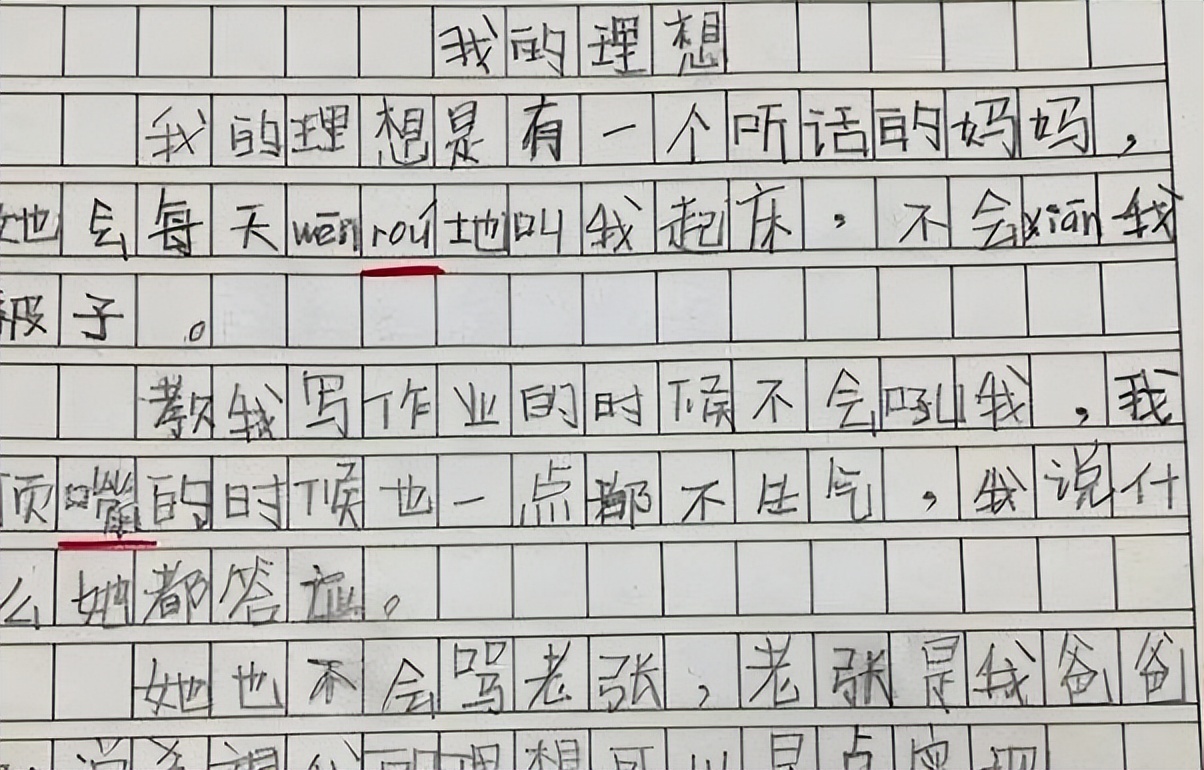 我的理想
我的理想是有一个听话的妈妈，
她会每天wēnróu地叫我起床，不会xián我
子。
教我写作业的时候不会吼我，我
顶嘴的时候也一点都不生气，我说什
么她都答应。
她也不会骂老张，老张是我爸爸
想 的理想可以早点实现